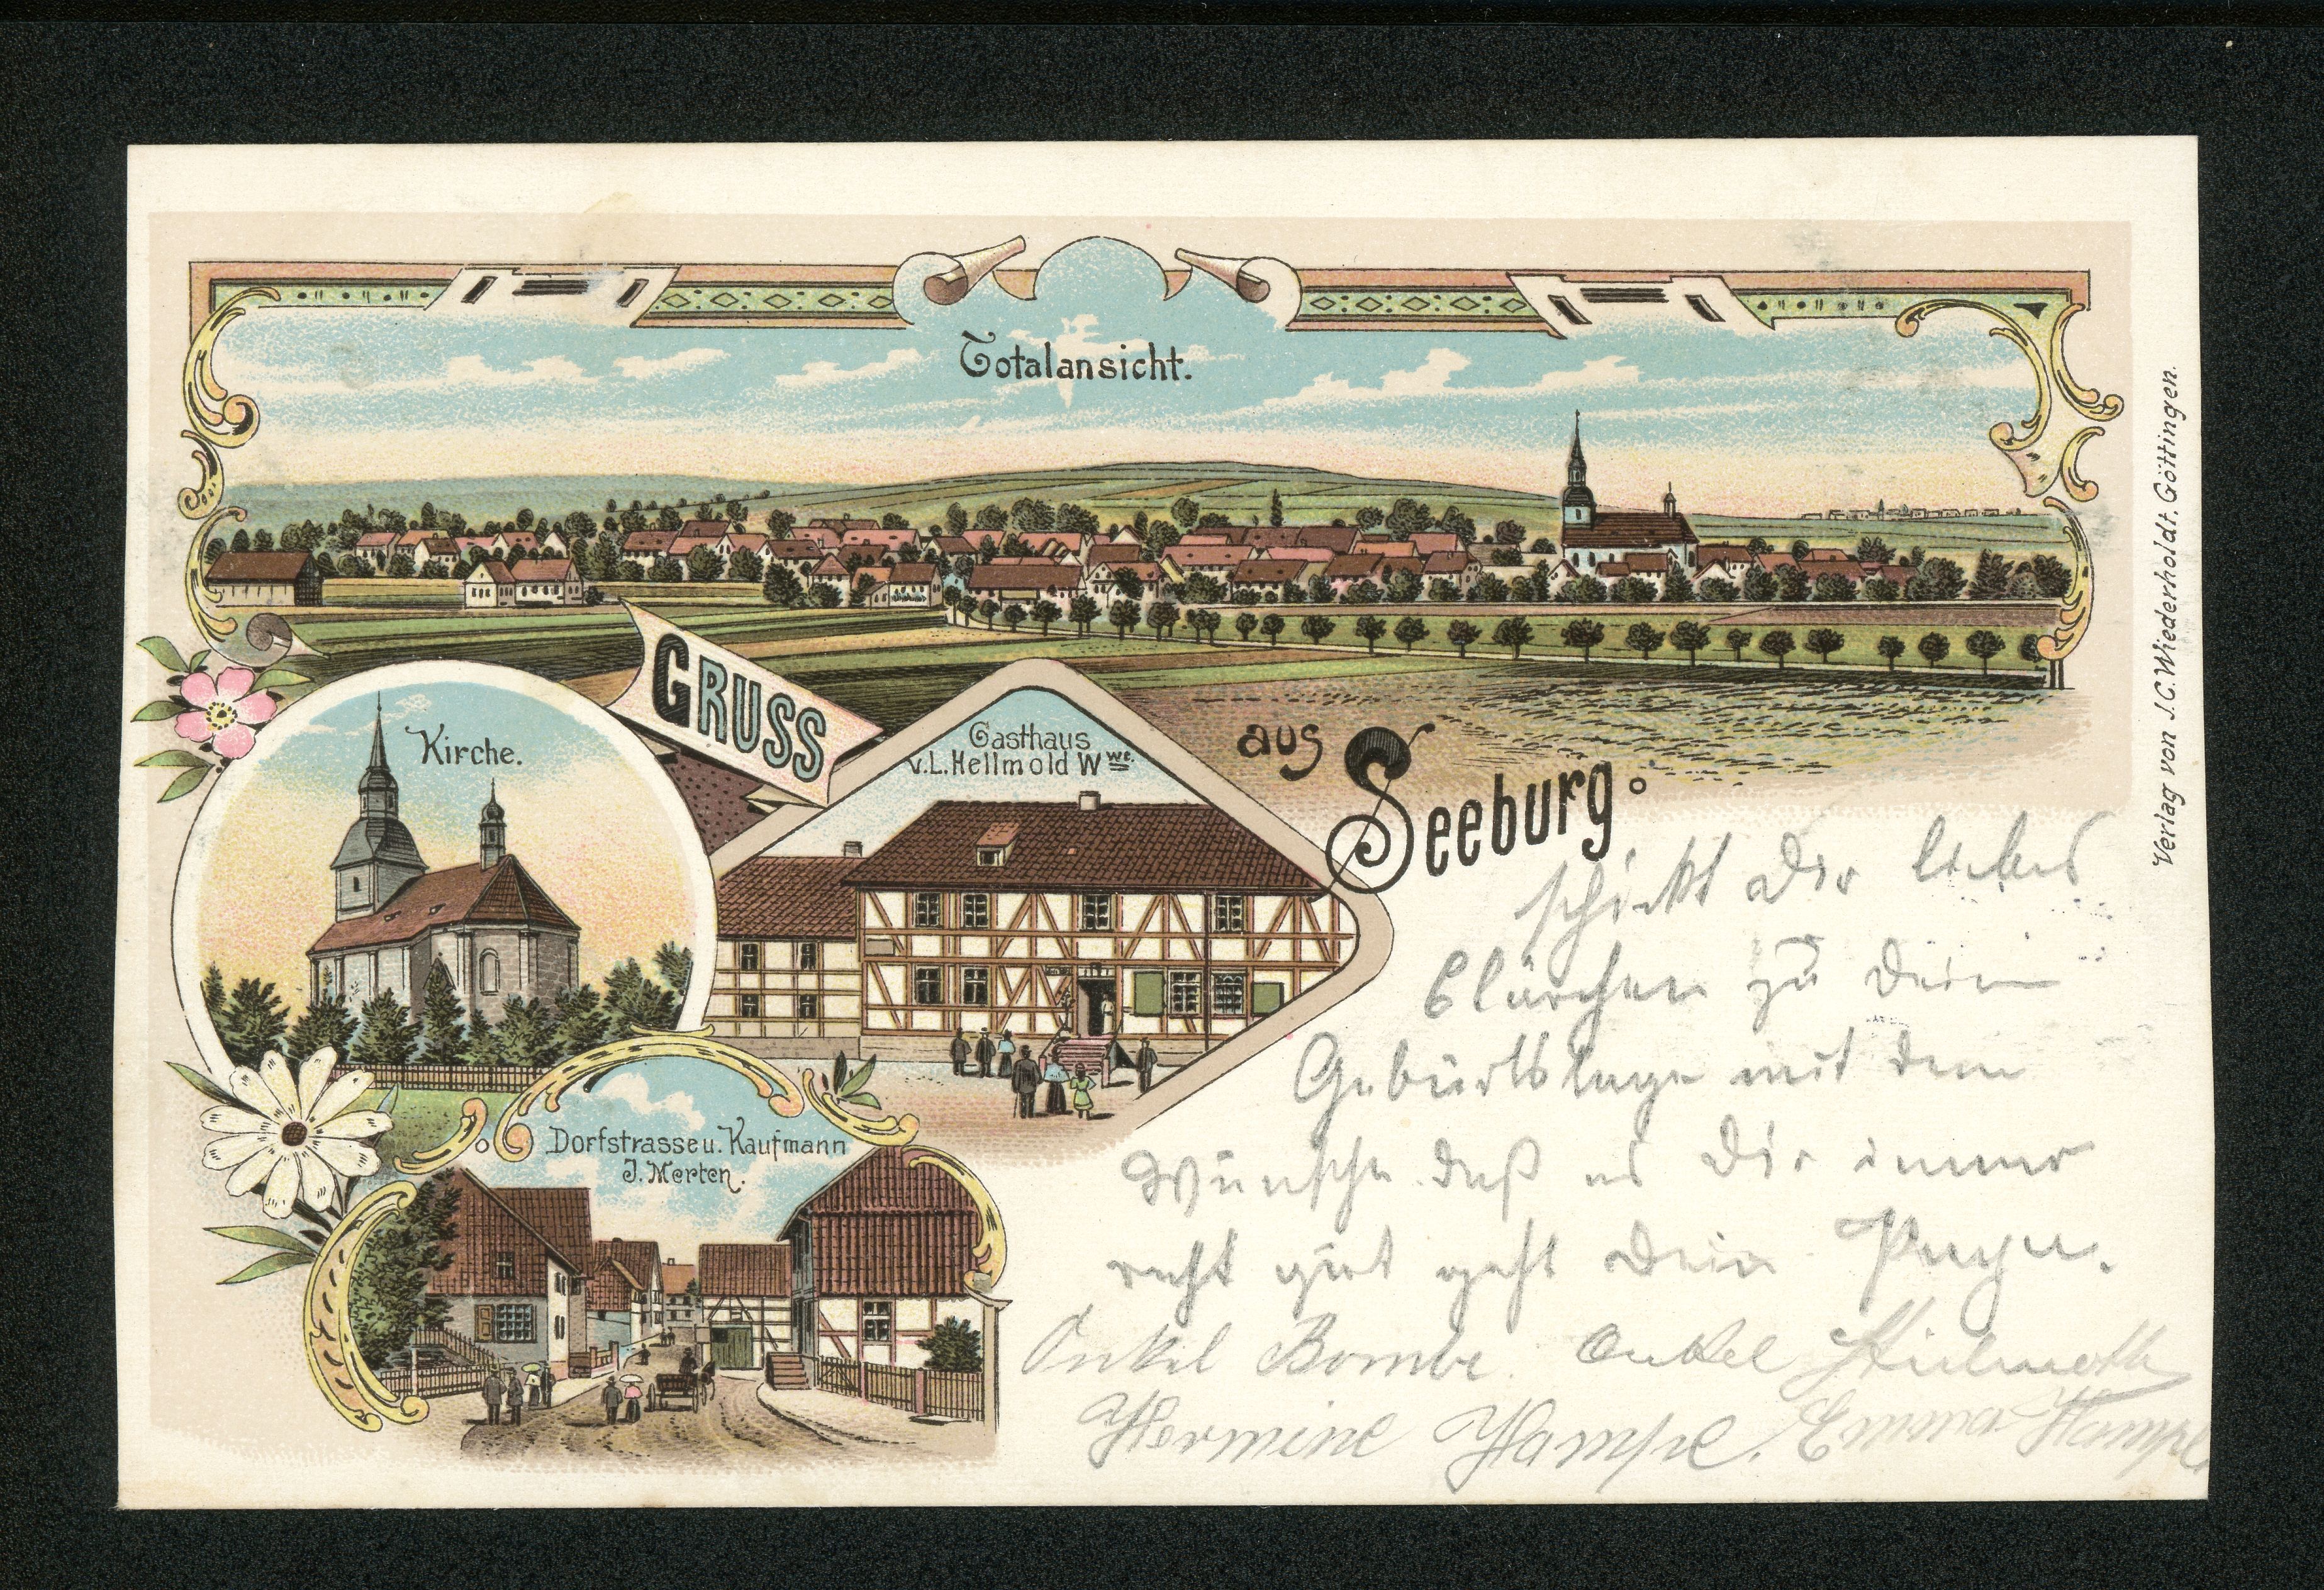 Totalansicht.
GRUSS
aus
Seeburg.
Kirche.
Gasthaus
v. L. Hellmold Wwe.
Dorfstrasse u. Kaufmann
J. Merten.
Verlag von J.C. Wiederholdt. Göttingen.
schickt dir liebes
Clärchen zu dein
Geburtstage mit dem
Wunsche daß es dir immer
recht gut geht dein
Onkel Bombe. Onkel
Hermine Hampe. Emma Hampe.